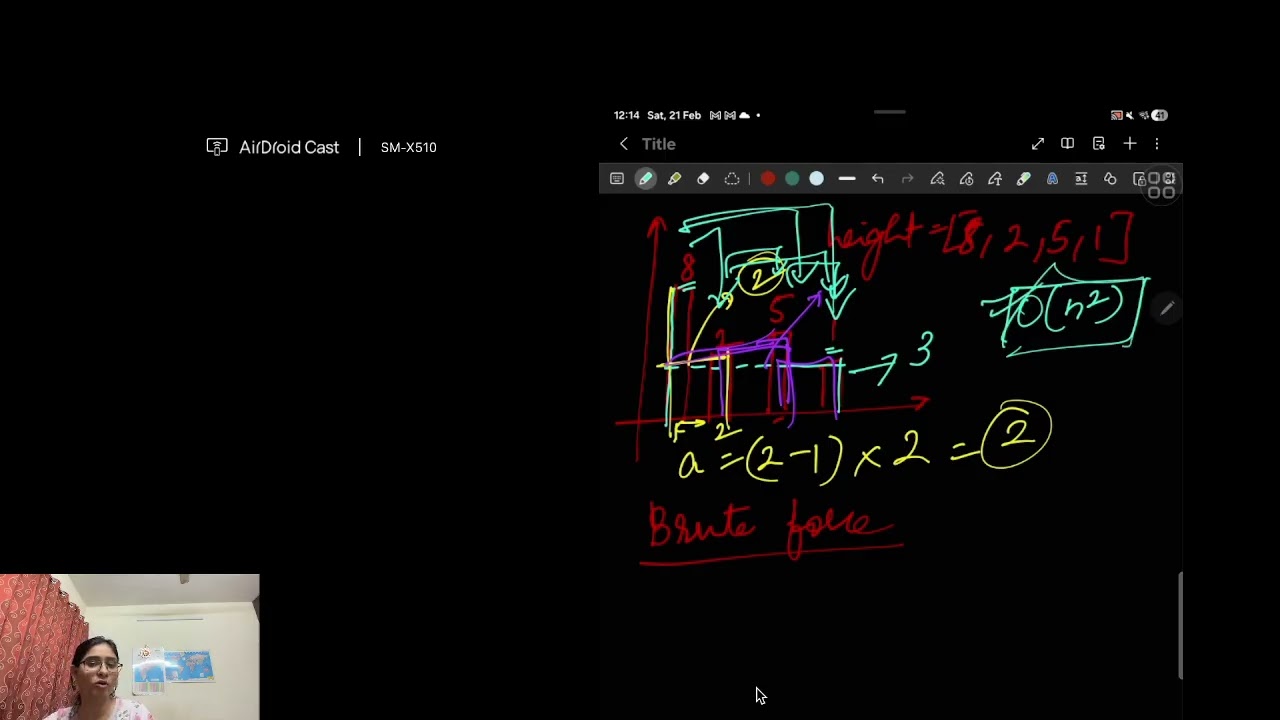 12:14 Sat, 21 Feb
41
AirDroid Cast | SM-X510
Title
height = [8, 2, 5, 1]
8
2
5
O(n²)
2
1
3
2
a = (2-1) × 2 = 2
Brute force